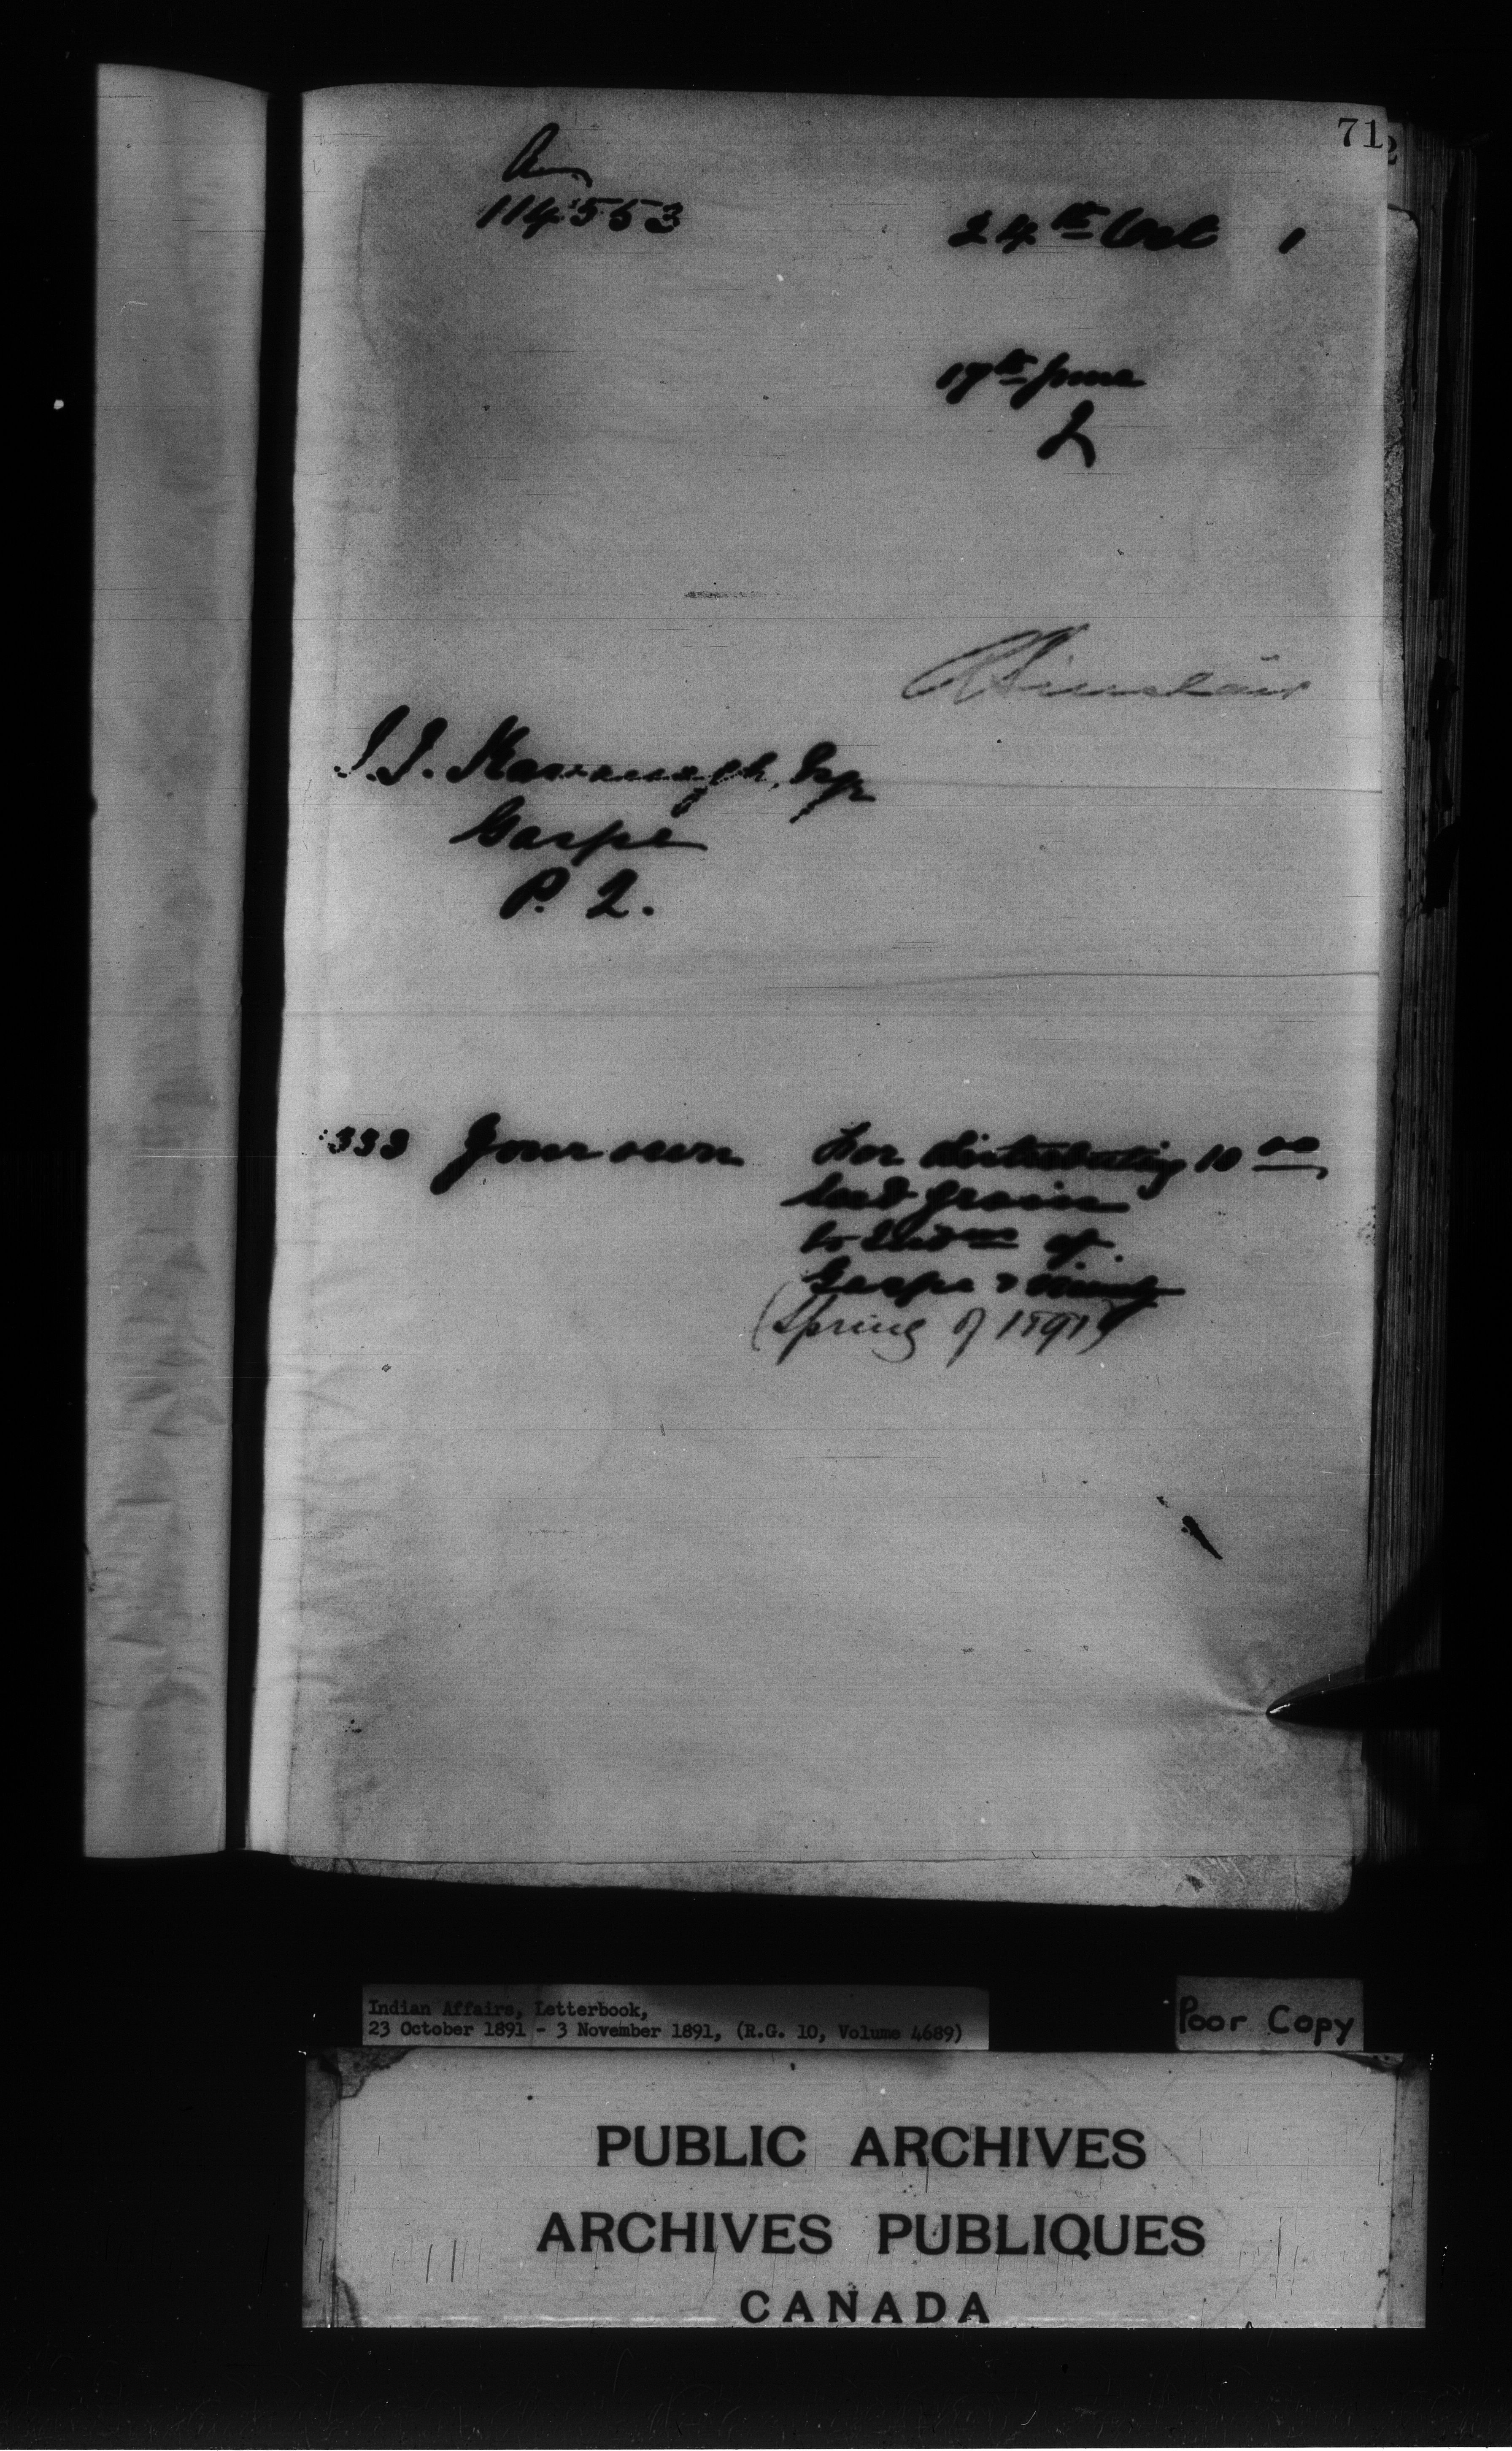 71
114553
24th Oct 1
17th June
2
Sinclair
J.J. Kavanagh, Esq
Gaspe
P. Q.
333 Your own For distributing 10 00
seed grain
to Indns of
Gaspe & vicinity
(Spring of 1891)
Indian Affairs, Letterbook,
23 October 1891 - 3 November 1891, (R.G. 10, Volume 4689)
Poor Copy
PUBLIC ARCHIVES
ARCHIVES PUBLIQUES
CANADA